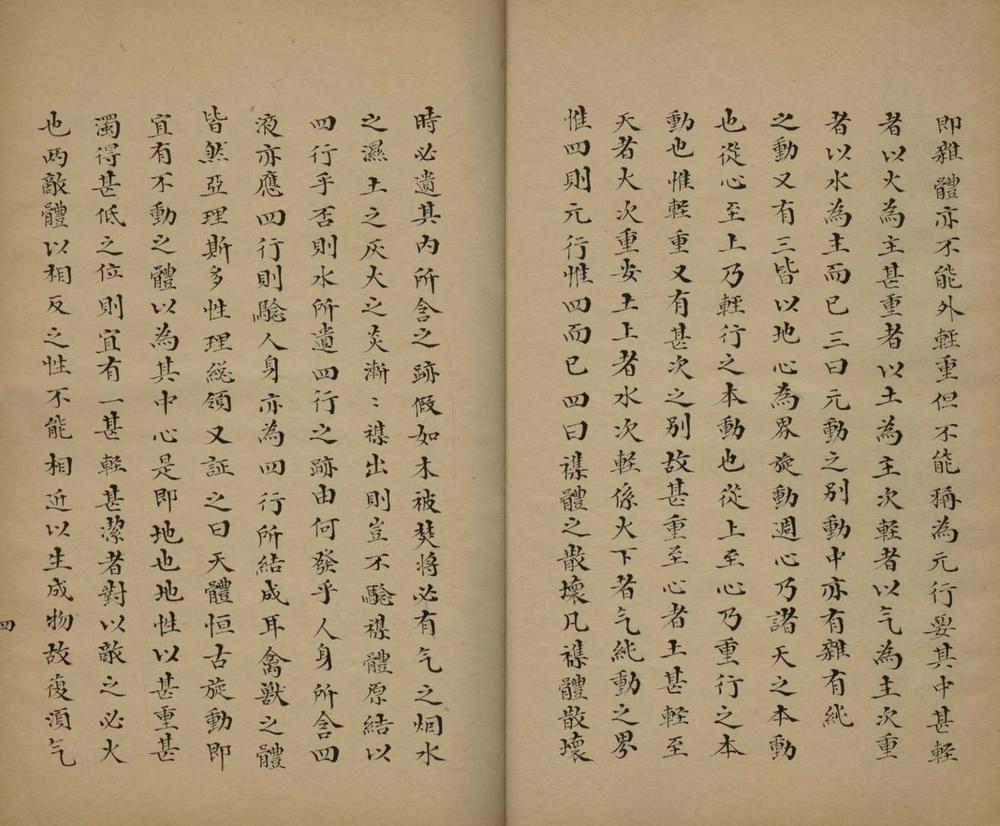 即雜體亦不能外輕重但不能稱為元行要其中甚輕
者以火為主甚重者以土為主次輕者以气為主次重
者以水為主而已三曰元動之別動中亦有雜有純
之動又有三皆以地心為界旋動週心乃諸天之本動
也從心至上乃輕行之本動也從上至心乃重行之本
動也惟輕重又有甚次之別故甚重至心者土甚輕至
天者火次重安土上者水次輕係火下者气純動之界
惟四則元行惟四而已四曰襍體之散壞凡襍體散壞
時必遺其內所含之跡假如木被焚將必有气之烟水
之濕土之灰火之炎漸〻襍出則豈不驗襍體原結以
四行乎否則水所遺四行之跡由何發乎人身所含四
液亦應四行則驗人身亦為四行所結成耳禽獸之體
皆然亞理斯多性理緫領又証之曰天體恒古旋動即
宜有不動之體以為其中心是即地也地性以甚重甚
濁得甚低之位則宜有一甚輕甚潔者對以敵之必火
也两敵體以相反之性不能相近以生成物故復湏气
四